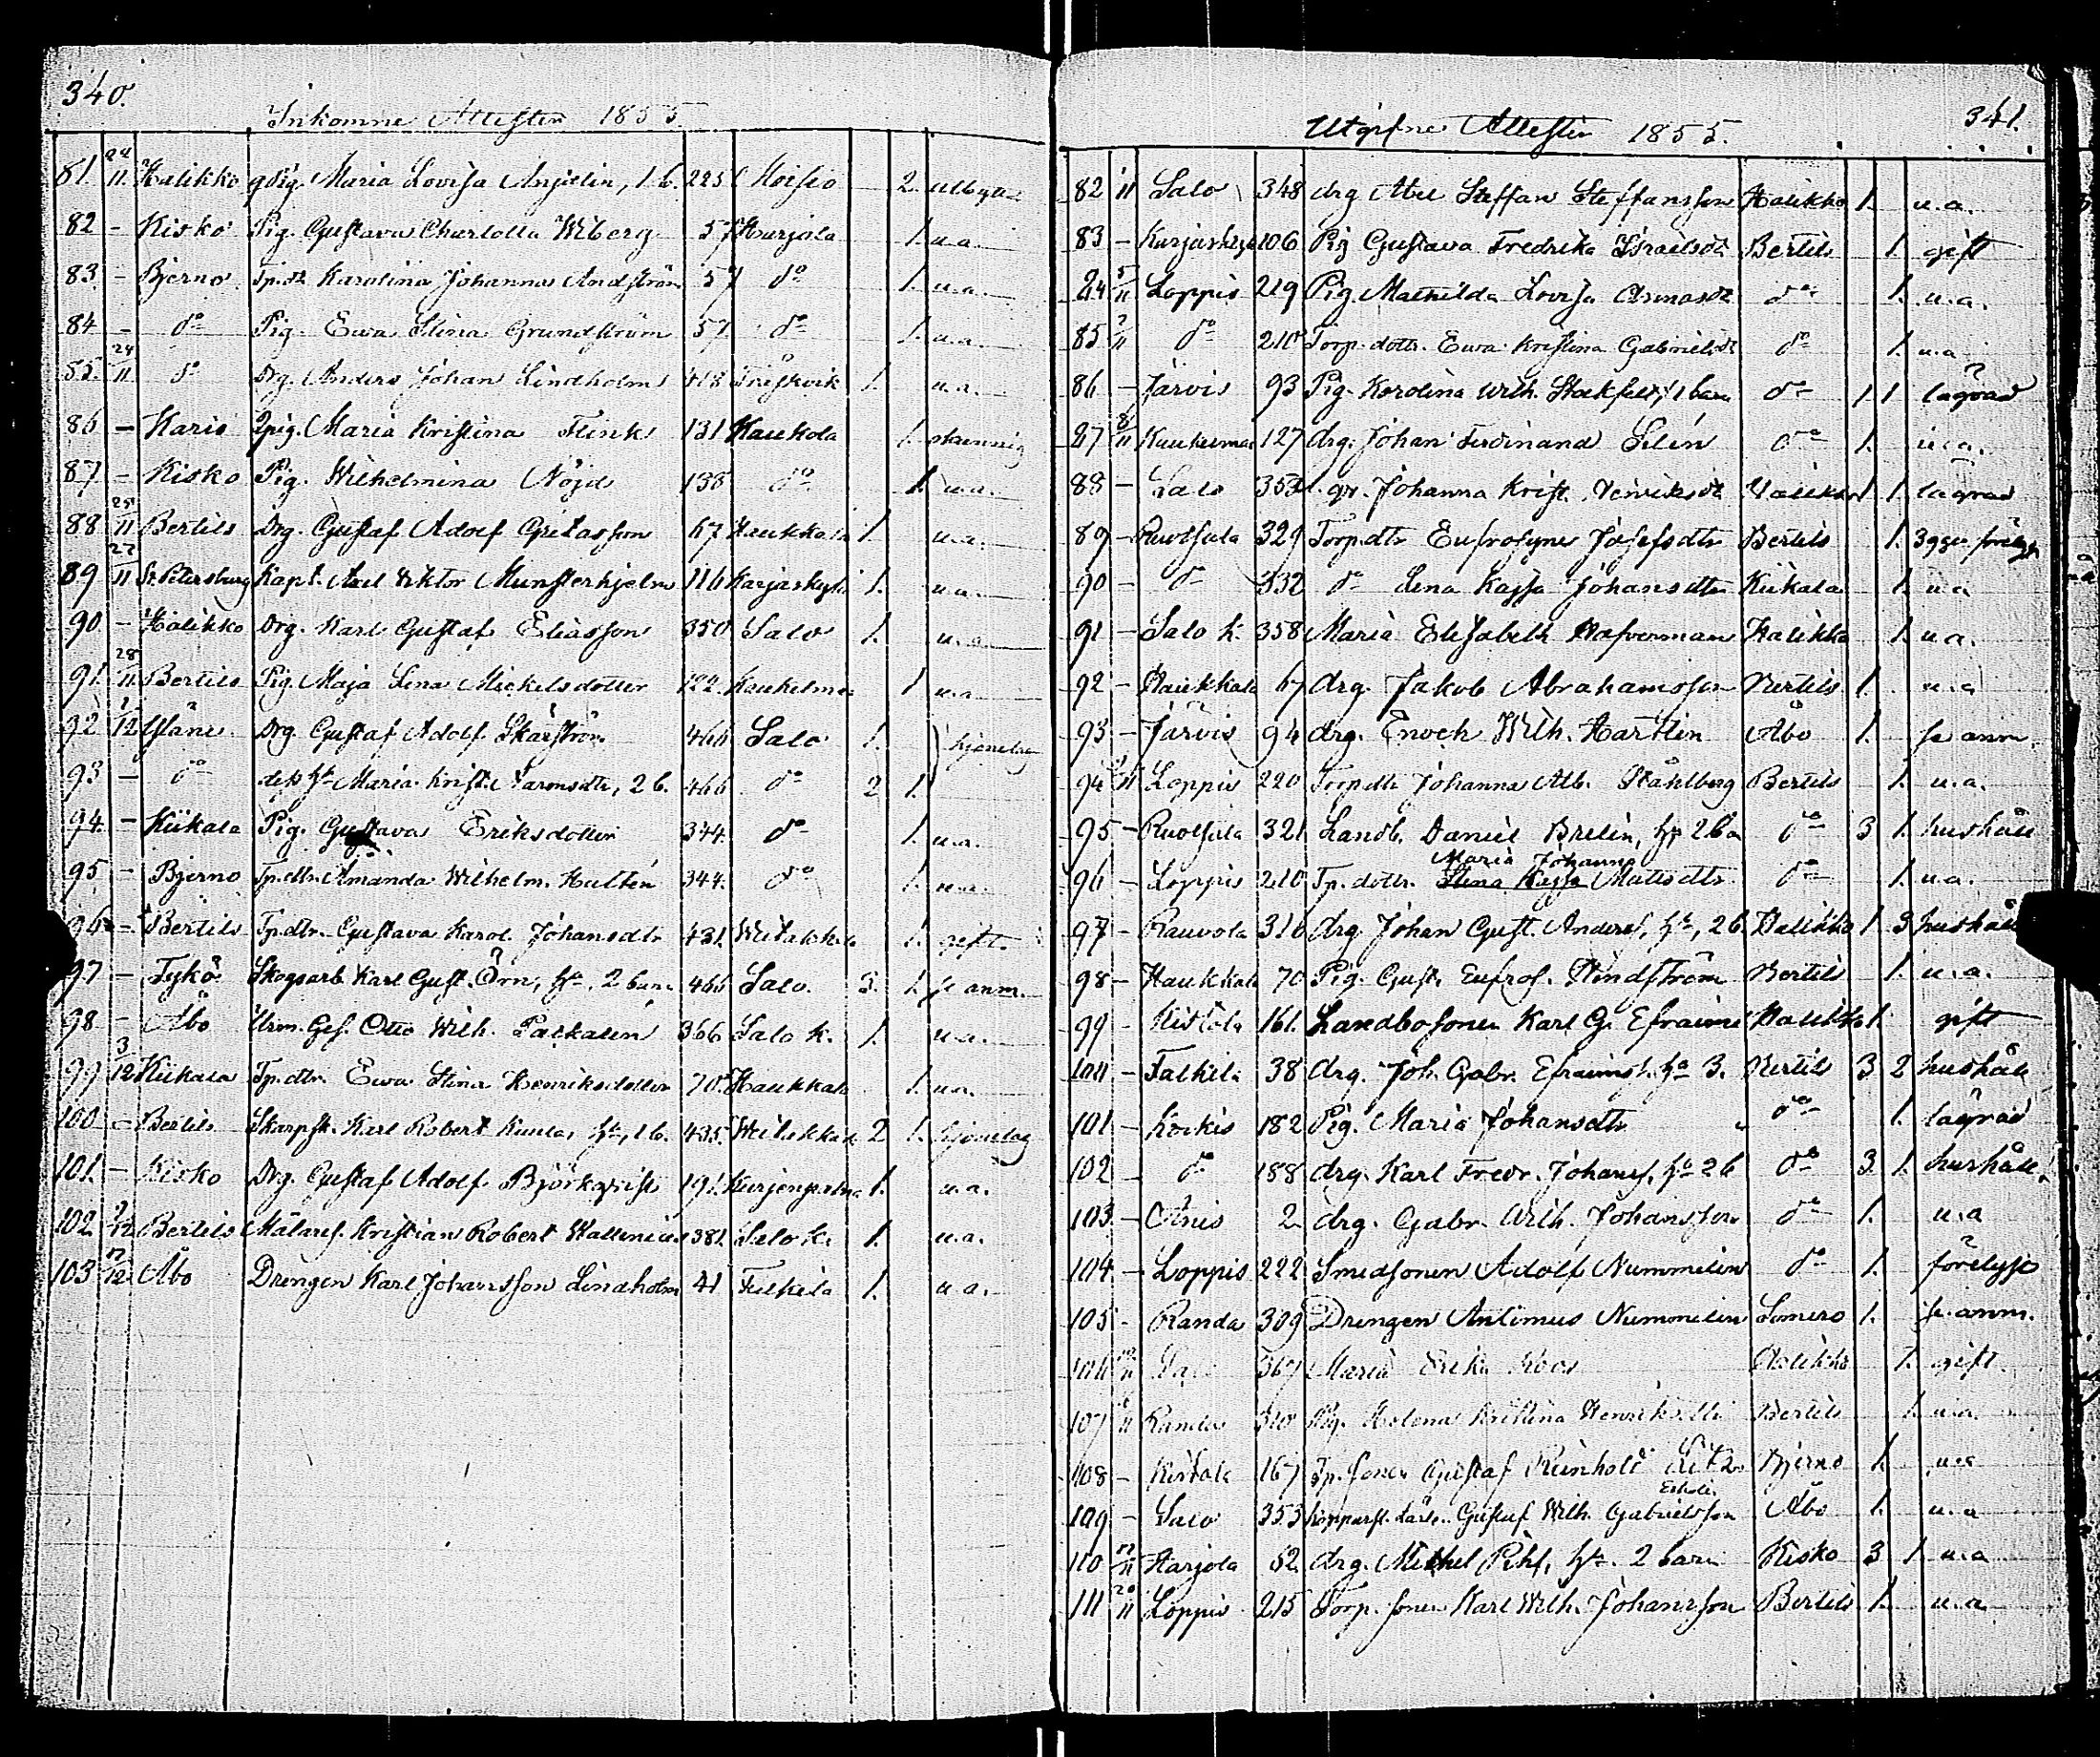 340.
Inkomne Attester 1855.
81. 22/11 Halikko qpig. Maria Lovisa Anjelin, 1 b. 225 Moisio 2.
82 - Kisko Pig. Gustava Charlotta Wiberg 57 Harjola 1. u.a.
83 - Bjerno Tp.dr Karolina Johanna Andström 57 do 1. u.a.
84 - do Pig. Ewa Stina Grundström 57. do 1. u.a.
85. 24/11 do Drg. Anders Johan Lindholm 418 Tråskvik 1. u.a.
86 - Karis Qpig. Maria Kristina Flink 131 Kaukola 1.
87 - Kisko Pig. Wilhelmina Nöjd 138 do 1. u.a.
88 25/11 Bertils Drg. Gustaf Adolf Gretasson 67 Haukkala 1. u.a.
89 27/11 St. Petersburg Kapt. Axel Viktor Munsterhjelm 116 Karjaskylä 1. u.a.
90. - Halikko Drg. Karl Gustaf Eliasson 350. Salo 1. u.a.
91. 28/11 Bertils Pig. Maja Lena Mickelsdotter 122. Kaukelma 1 u.a.
92 1/12 Yläne Drg. Gustaf Adolf Skärström 466 Salo 1. hjonelag
93 - do dess h. Maria Krist. Karmsdtr, 2 b. 466 do 2 1.
94. - Kiikala Pig. Gustava Eriksdotter 344. do 1. u.a.
95. - Bjerno Tp.dtr. Amanda Wilhelm. Hultén 344. do 1. u.a.
96 - Bertils Tp.dtr. Gustava Karol. Johansdtr 431. Weitakkala 1. gift.
97 - Tykö Skogsarb. Karl Gust. Örn, h., 2 barn 466 Salo. 3. 1. se anm.
98 - Åbo Urm. Ges. Otto Wilh. Palkalén 366 Salo k. 1. u.a.
99 3/12 Kiikala Tp.dtr. Ewa Stina Henriksdotter 70. Haukkala 1. u.a.
100 - Bertils Skarpsk. Karl Robert Kunla, h., 1 b. 435. Weitakkala 2 1. hjonelag
101. - Kisko Drg. Gustaf Adolf Björkqvist 191. Kurjenpahna 1. u.a.
102. 9/12 Bertils Målares. Kristian Robert Wallenius 381. Salo k. 1. u.a.
103 17/12 Åbo Drengen Karl Johansson Lindholm 41 Talkila 1. u.a.
341.
Utgifne Attester 1855.
82 /11 Salo 348 drg Abel Staffan Steffansson Halikko 1. u.a.
83 - Karjaskylä 106 Pig Gustava Fredrika Israelsdr Bertils 1. gift
84 5/11 Loppis 219 Pig. Mathilda Lovisa Asmasdr do 1. u.a.
85 7/11 do 210 Torp. dottr. Ewa Kristina Gabrielsdr do 1. u.a
86 - Järvis 93 Pig. Karolina Wilh. Stockfelt, 1 barn do 1 1 lagrad
87 8/11 Kaukelma 127 drg. Johan Ferdinand Selén do 1. u.a.
88 - Salo 353 Johanna Krist. Henriksdr Halikko 1 1. lagrad
89 - Ruotsala 329 Torp.dtr Eufrosyne Josefsdtr Bertils 1.
90 - do 332 do Lena Kajsa Johansdtr Kiikala 1. u.a
91 - Salo k. 358 Maria Elisabeth Hafverman Halikko 1. u.a.
92 - Haukkala 67 drg. Jakob Abrahamsson Bertils 1. u.a
93 - Järvis 94 drg. Enoch Wilh. Hartlin Åbo 1. se anm.
94 /11 Loppis 220 Torp.dtr Johanna Alb. Ståhlberg Bertils 1. u.a.
95 - Ruotsala 321 Landb. Daniel Brelin, h. 2 ba do 3 1. hushåll
Maria Johanna
96 - Loppis 210 Tp. dottr. Stina Kajsa Mattsdtr do 1. u.a.
97 - Rauvola 316 drg Johan Gust. Anders, h., 2 b. Halikko 1 3 hushåll
98 - Haukkala 70 Pig. Gust. Eufros. Windström Bertils 1. u.a.
99 - Kistola 161. Landbosonen Karl G. Efraims Halikko 1. gift
100 - Talkila 38 drg. Joh. Gabr. Efraims h. 3. Bertils 3 2 hushåll
101 - Korkis 182 Pig. Maria Johansdtr do 1. lagrad
102 - do 188 drg. Karl Fredr. Johans, h. 2 b do 3. 1. hushåll
103. - Anis 2 drg. Gabr. Wilh. Johansson do 1. u.a
104. - Loppis 222 Smedsonen Adolf Nummelin do 1. förelyst
105 - Randa 309 Drengen Antimus Nummelin Somero 1. se anm.
106 /11 Sa 367 Maria Erika Roos Halikko 1. gift.
107 /11 Randa 310 Pig. Helena Kristina Henriksdtr Bertils 1. u.a.
108 - Kistola 167 Tp. sonen Gustaf Reinhold Bjerno 1. u.a
109 - Salo 353 kopparsl. lär. Gustaf Wilh. Gabrielsson Åbo 1. u.a
110 17/11 Harjola 52 drg. Mickel Pihl, h. 2 barn Kisko 3 1 u.a
111 20/11 Loppis 215 Torp. sonen Karl Wilh. Johansson Bertils 1. u.a